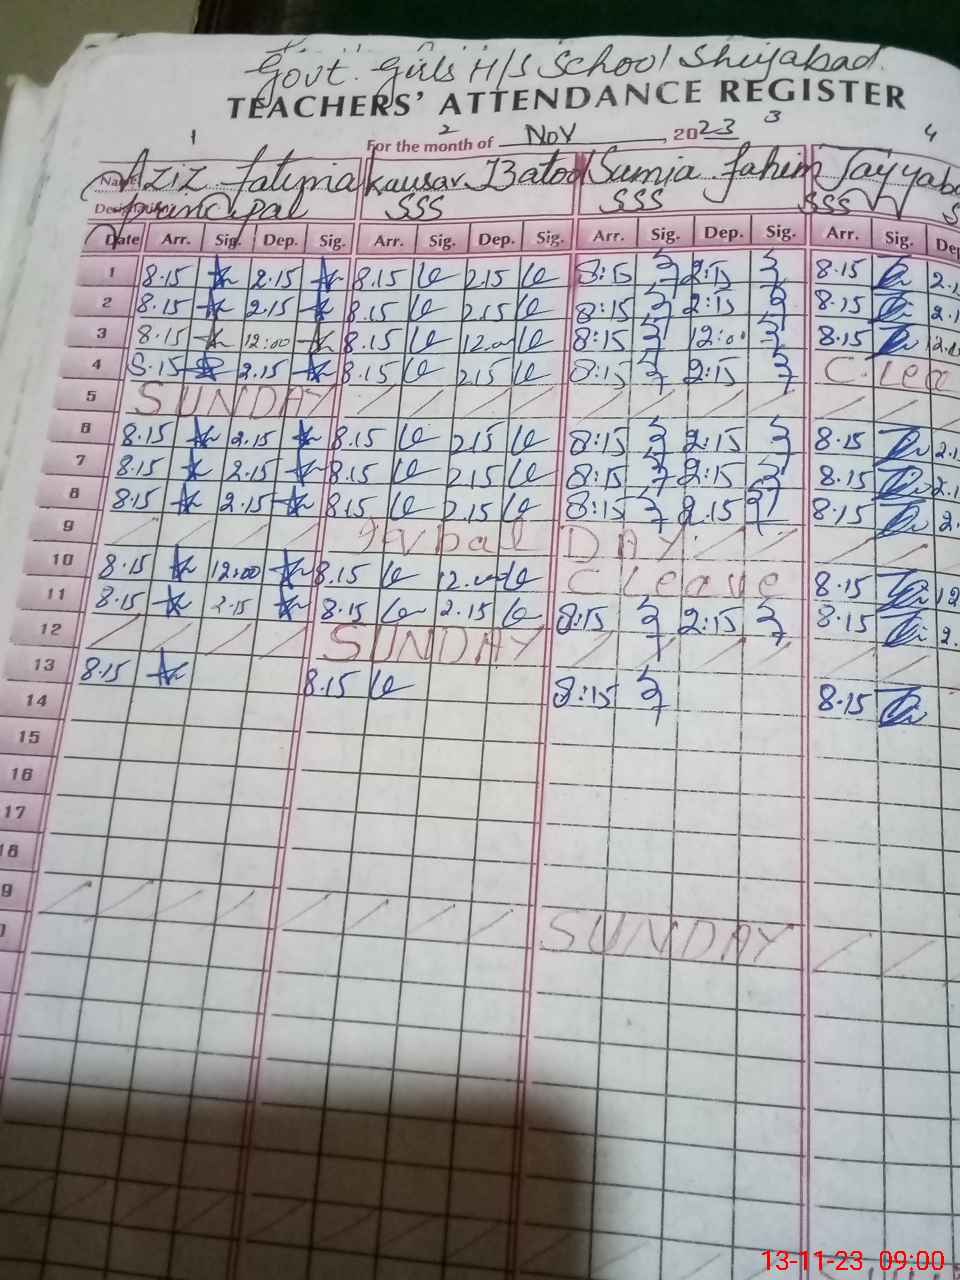 Govt. Girls H/S School Shujabad.
TEACHERS' ATTENDANCE REGISTER
1 2 3 4
For the month of Nov 2023
Name Aziz Fatima Kausar Batool Sumia Fahim Tayyaba
Principal SSS SSS SSS S
Date Arr. Sig. Dep. Sig. Arr. Sig. Dep. Sig. Arr. Sig. Dep. Sig. Arr. Sig. Dep
1 8.15 2.15 8.15 2.15 8:15 2:15 8.15 2.1
2 8.15 2.15 8.15 2.15 8:15 2:15 8.15 2.1
3 8.15 12:00 8.15 12.00 8:15 12:00 8.15 12.0
4 8.15 2.15 8.15 2.15 8:15 2:15 C. Lea
5 SUNDAY
6 8.15 2.15 8.15 2.15 8:15 2:15 8.15 2.1
7 8.15 2.15 8.15 2.15 8:15 2:15 8.15 2.1
8 8.15 2.15 8.15 2.15 8:15 2.15 8.15 2.
9 Iqbal DAY
10 8.15 12:00 8.15 12.00 C Leave 8.15 12
11 8.15 2.15 8.15 2.15 8:15 2:15 8.15 2.
12 SUNDAY
13 8.15 8.15 8:15 8.15
14
15
16
17
18
9
SUNDAY
13-11-23 09:00